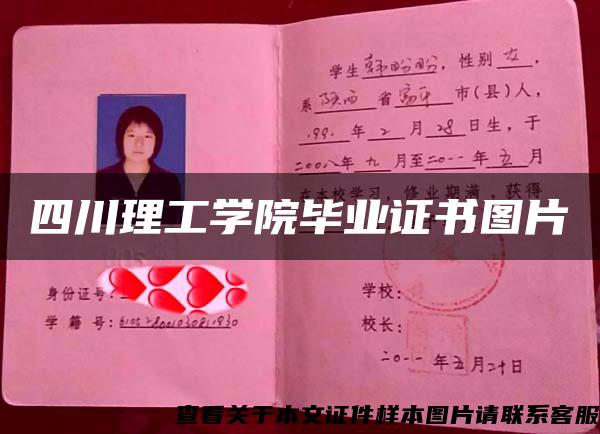 学生韩盼盼，性别女，
系陕西省富平市(县)人，
199 年2月28日生，于
二00八年九月至二0一一年五月
在本校学习，修业期满，获得
四川理工学院毕业证书图片
身份证号：
学籍号：
学校：
校长：
二0一一年五月二十日
查看关于本文证件样本图片请联系客服